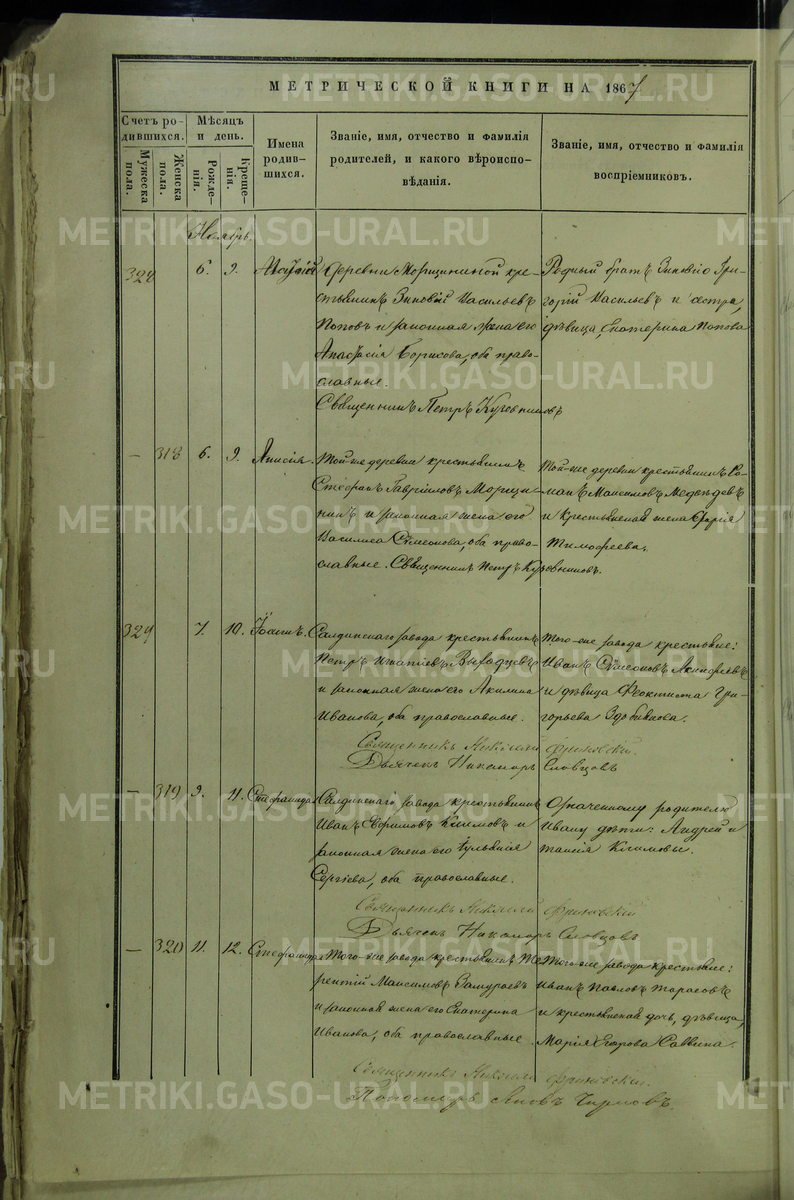 МЕТРИЧЕСКОЙ КНИГИ НА 1867
Счетъ ро-
дившихся.
Мужеска
пола.
Женска
пола.
Мѣсяцъ
и день.
Рожде-
нія.
Креще-
нія.
Имена
родив-
шихся.
Званіе, имя, отчество и фамилія
родителей, и какого вѣроиспо-
вѣданія.
Званіе, имя, отчество и фамилія
воспріемниковъ.
Ноябрь.
328 6. 9.
Деревни Морщининой кре-
стьянинъ Зиновій Васильевъ
Поповъ и законная жена его
Анастасія Борисова, оба право-
славные.
Священникъ Петръ
Родный братъ Зиновію Гри-
горій Васильевъ и сестра,
дѣвица, Екатерина Попова
— 318 6. 9. Анисія.
Той-же деревни крестьянинъ
Стефанъ Гавріиловъ Морщи-
нинъ и законная жена его
Василиса Симеонова, оба право-
славные. Священникъ Петръ
Той-же деревни крестьянинъ Ро-
манъ Максимовъ Медвѣдевъ
и крестьянская жена
Тимофеева.
329 7. 10.
Салдинскаго завода крестьянинъ
Петръ Игнатіевъ
и законная жена его Акилина
Иванова, оба православные.
Священникъ Николай
Дьячекъ Никаноръ Словцовъ
Того-же завода крестьяне:
Иванъ Симеоновъ
и дѣвица Феоктиста Гри-
горьева
— 319 9. 11. Стефанида.
Салдинскаго завода крестьянинъ
Иванъ Ефимовъ Климовъ и
законная жена его
Сергіева, оба православные.
Священникъ Николай
Дьячекъ Никаноръ Словцовъ
Означенному родителю
Ивану дѣти: Андрей и
Таисія Климовы.
— 320 11. 12. Стефанида.
Того-же завода крестьянинъ Те-
рентій Максимовъ Замураевъ
и законная жена его Екатерина
Иванова, оба православные.
Священникъ Николай
Пономарь
Того-же завода крестьяне:
Иванъ Павловъ Тарасовъ
и крестьянская дочь, дѣвица,
Марія Егорова Саввина.
METRIKI.GASO-URAL.RU